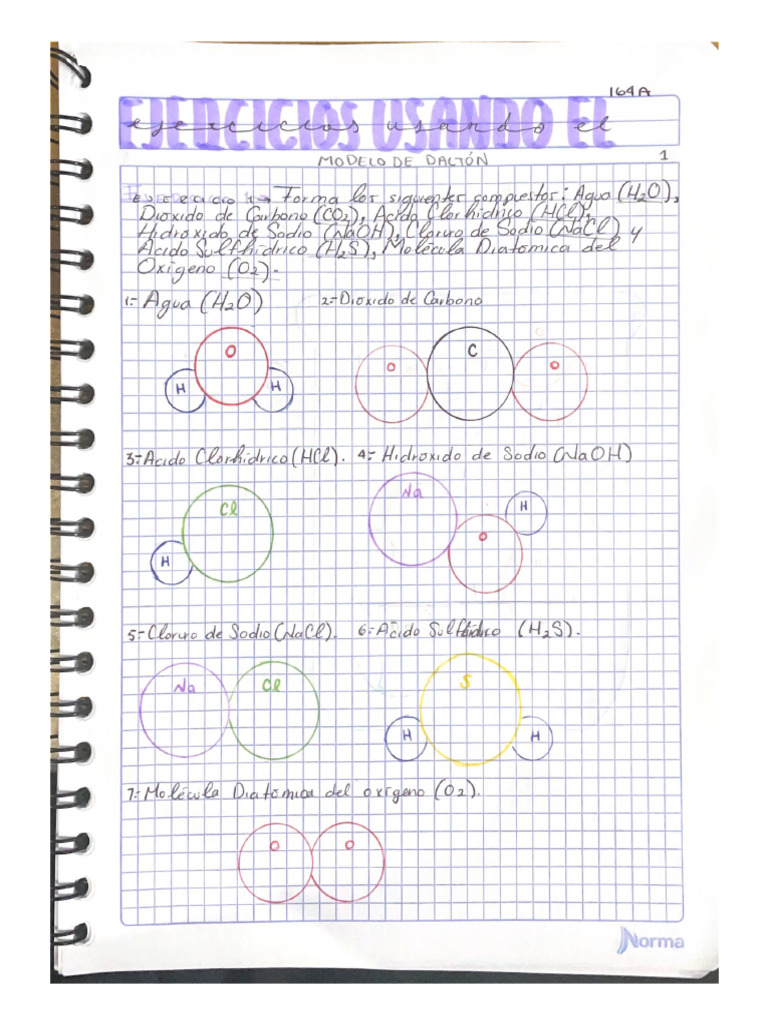 164A
EJERCICIOS USANDO EL
ejercicios usando el
MODELO DE DALTÓN
1
Ejercicio 1 → Forma los siguientes compuestos: Agua (H2O),
Dioxido de Carbono (CO2), Acido Clorhidrico (HCl),
Hidroxido de Sodio (NaOH), Cloruro de Sodio (NaCl) y
Acido Sulfhidrico (H2S), Molécula Diatomica del
Oxigeno (O2).
1:- Agua (H2O)
2:- Dioxido de Carbono
O
H
H
O
C
O
3:- Acido Clorhidrico (HCl).
4:- Hidroxido de Sodio (NaOH)
Cl
H
Na
O
H
5:- Cloruro de Sodio (NaCl).
6:- Acido Sulfhidrico (H2S).
Na
Cl
S
H
H
7:- Molécula Diatomica del oxigeno (O2).
O
O
Norma